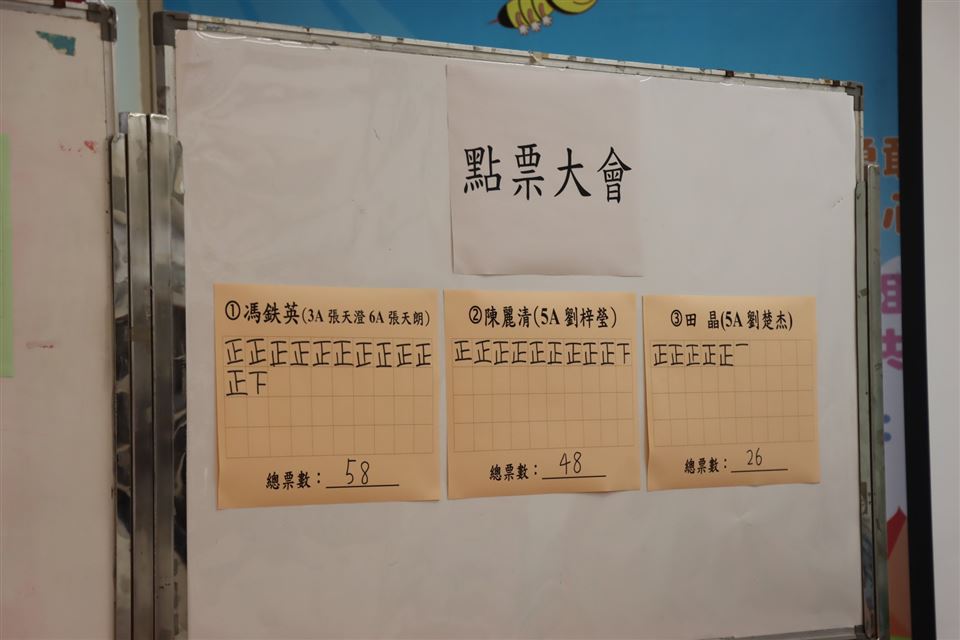 點票大會
①馮鉄英(3A 張天澄 6A 張天朗)
正正正正正正正正正正
正下
總票數：58
②陳麗清(5A 劉梓瑩)
正正正正正正正正正下
總票數：48
③田 晶(5A 劉楚杰)
正正正正正一
總票數：26